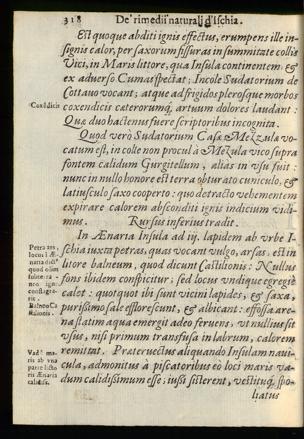 318 De' rimedii naturali d'Ischia.
Est quoque abditi ignis effectus, erumpens ille in-
signis calor, per saxorum fissuras in summitate collis
Vici, in Maris littore, qua Insula continentem &
ex adverso Cumas spectat; Incolę Sudatorium de
Cottauo vocant; atque ad frigidos plerosque morbos
Coxēdicis
coxendicis cæterorumq; artuum dolores laudant:
Quæ duo hactenus fuere scriptoribus incognita.
Quod verò Sudatorium Casæ Mezulæ vo-
catum est, in colle non procul à Mezulæ vico supra
fontem calidum Gurgitellum, alias in vsu fuit:
nunc in nullo honore est terra obturato cuniculo, &
latiusculo saxo cooperto: quo detracto vehementem
expirare calorem absconditi ignis indicium vidi-
mus. Rursus inferius tradit.
In Ænaria Insula ad iij. lapidem ab vrbe I-
schia iuxta petras, quas vocant vulgo, arsas, est in
littore balneum, quod dicunt Castilionis: Nullus
fons ibidem conspicitur; sed locus vndique egregiè
calet: quotquot ibi sunt vicini lapides, & saxa,
purissimo sale efflorescunt, & albicant: effossa are-
na statim aqua emergit adeo feruens, vt nullius sit
vsus, nisi primum transfusa in labrum, calorem
remittat. Præteruectus aliquando Insulam naui-
cula, admonitus à piscatoribus eo loci maris va-
dum calidissimum esse; iussi sisterent, vestitusq; spo-
liatus
Petra ars,
loci i Æ-
naria
quod olim
igni
conflagra-
rit.
Balneo Ca
stilionis.
Vadũ ma
ris ab vna
parte litto
ris Ænaria
calidiss.